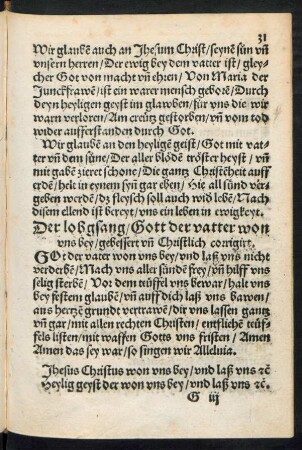 31
Wir glaubẽ auch an Jhesum Christ/seynẽ sün vñ
vnsern herren/Der ewig bey dem vatter ist/gley-
cher Got von macht vñ ehren/Von Maria der
Junckfrawẽ/ist ein warer mensch geborẽ/Durch
deyn heyligen geyst im glawben/für vns die/wir
warn verlorẽ/Am creütz gestorbẽ/vñ vom tod
wider aufferstanden durch Got.
Wir glaubẽ an den heyligẽ geist/Got mit vat-
ter vñ dem süne/Der aller blödẽ tröster heyst/vñ
mit gabẽ zieret schone/Die gantz Christẽheit auff
erdẽ/helt in eynem syñ gar ebẽ/Hie all sünd ver-
geben werdẽ/dz fleysch soll auch wid lebẽ/Nach
disem ellend ist bereyt/vns ein leben in ewigkeyt.
Der lobgsang/Gott der vatter won
vns bey/gebessert vñ Christlich corrigirt.
GOt der vater won vns bey/vnd laß vns nicht
verderbẽ/Mach vns aller sündẽ frey/vñ hilff vns
selig sterbẽ/Vor dem teüffel vns bewar/halt vns
bey festem glaubẽ/vñ auff dich laß vns bawen/
aus hertzẽ grundt vertrawẽ/dir vns lassen gantz
vñ gar/mit allen rechten Christen/entfliehẽ teüf-
fels listen/mit waffen Gotts vns fristen/Amen
Amen das sey war/so singen wir Alleluia.
Jhesus Christus won vns bey/vnd laß vns ꝛc̃
Heylig geyst der won vns bey/vnd laß vns ꝛc̃.
G iij